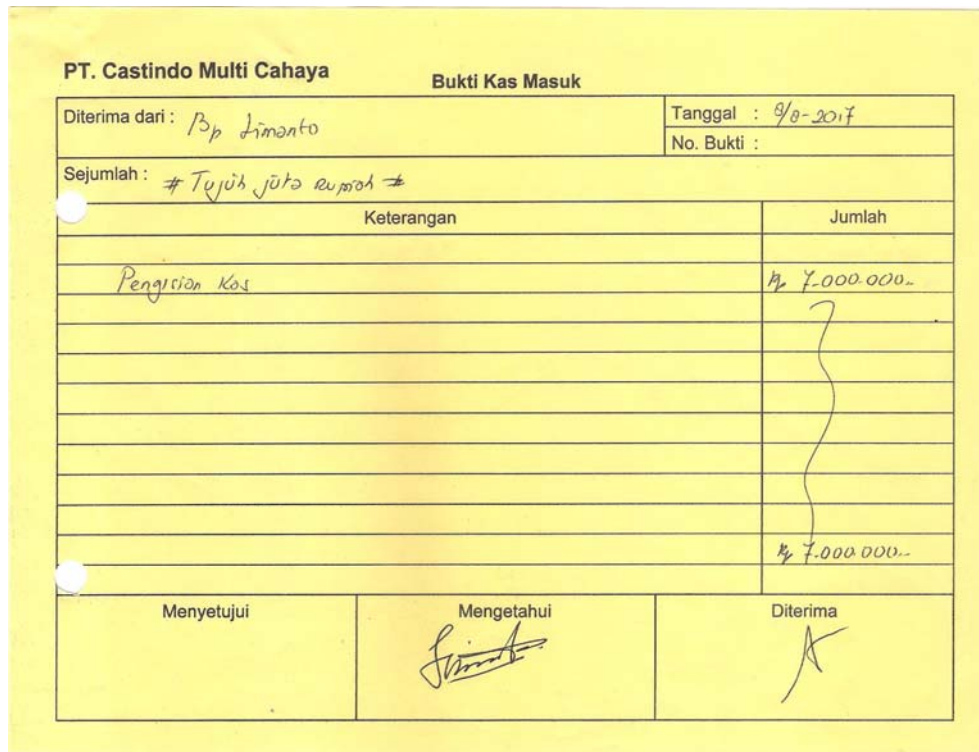 PT. Castindo Multi Cahaya
Bukti Kas Masuk
Diterima dari : Bp Limanto
Tanggal : 8/8-2017
No. Bukti :
Sejumlah : # Tujuh juta Rupiah #
Keterangan Jumlah
Pengisian Kas Rp 7.000.000.-
Rp 7.000.000.-
Menyetujui Mengetahui Diterima